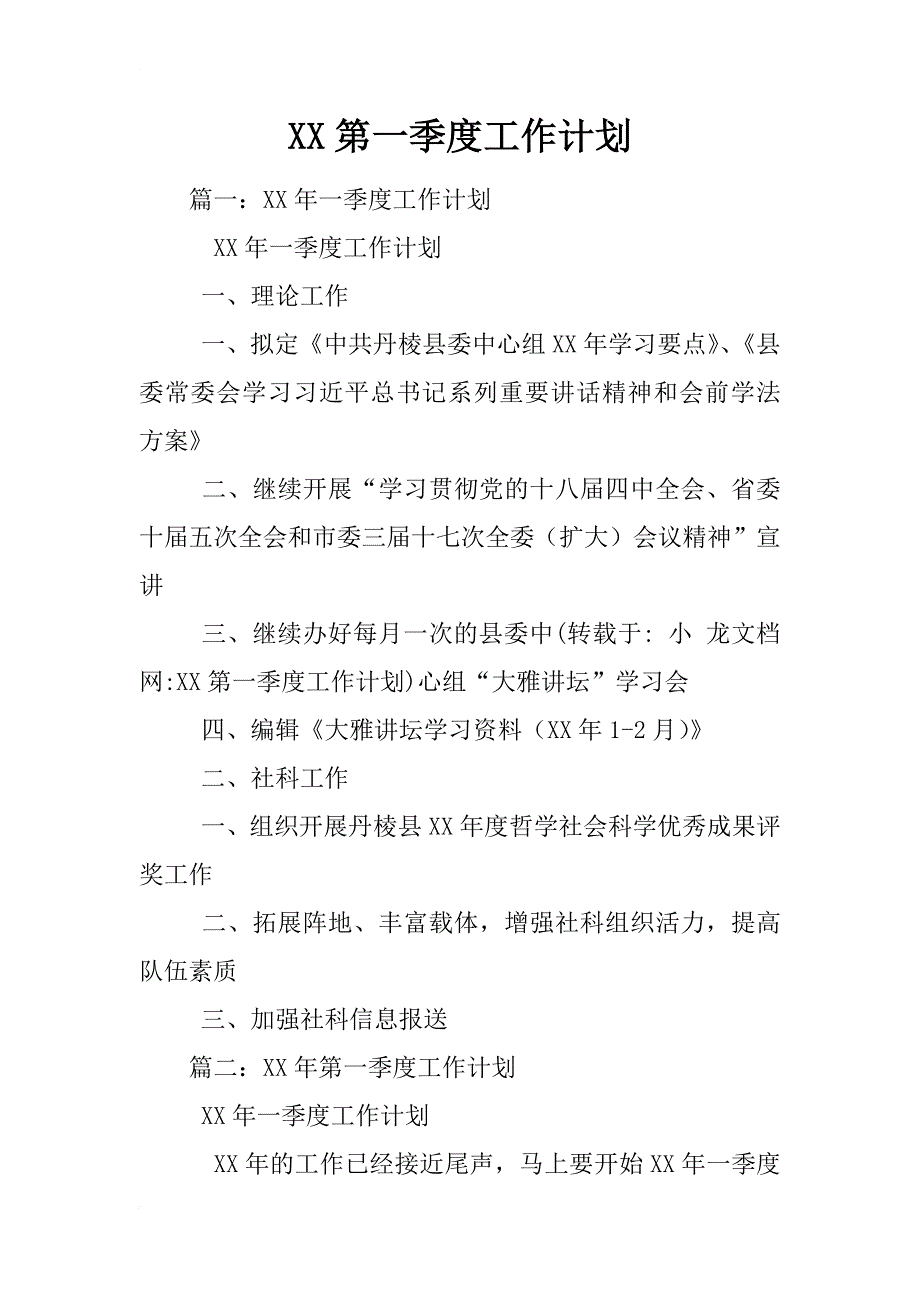 XX第一季度工作计划
篇一：XX年一季度工作计划
XX年一季度工作计划
一、理论工作
一、拟定《中共丹棱县委中心组XX年学习要点》、《县
委常委会学习习近平总书记系列重要讲话精神和会前学法
方案》
二、继续开展“学习贯彻党的十八届四中全会、省委
十届五次全会和市委三届十七次全委（扩大）会议精神”宣
讲
三、继续办好每月一次的县委中(转载于: 小 龙文档
网:XX第一季度工作计划)心组“大雅讲坛”学习会
四、编辑《大雅讲坛学习资料（XX年1-2月）》
二、社科工作
一、组织开展丹棱县XX年度哲学社会科学优秀成果评
奖工作
二、拓展阵地、丰富载体，增强社科组织活力，提高
队伍素质
三、加强社科信息报送
篇二：XX年第一季度工作计划
XX年一季度工作计划
XX年的工作已经接近尾声，马上要开始XX年一季度